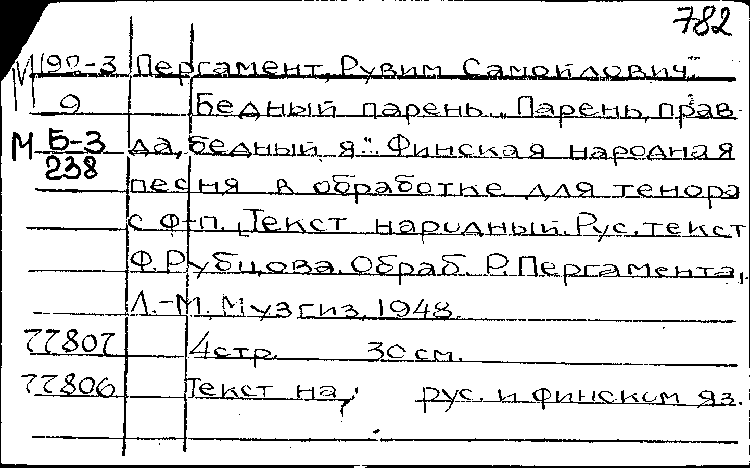 782
М 192-3 Пергамент, Рувим Самойлович.
9 Бедный парень. "Парень, прав-
М Б-3 да, бедный я". Финская народная
238 песня в обработке для тенора
с ф-п. Текст народный. Рус. текст
Ф. Рубцова. Обраб. Р. Пергамента.
Л.-М. Музгиз, 1948.
77807 4 стр. 30 см.
77806 Текст на рус. и финском яз.